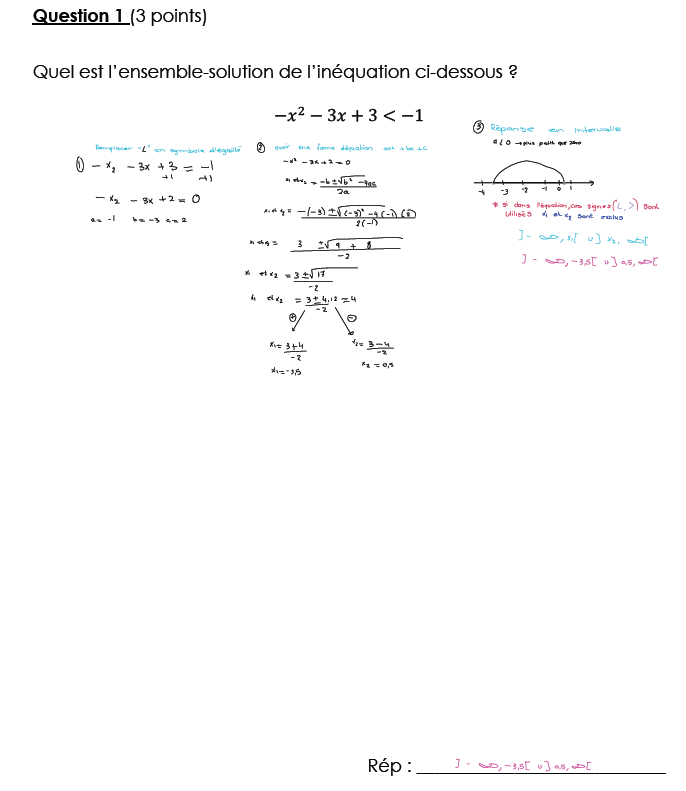 Question 1 (3 points)
Quel est l'ensemble-solution de l'inéquation ci-dessous ?
−x² − 3x + 3 < −1
Remplacer "<" en symbole d'égalité
① − x₂ − 3x + 3 = −1
+1 +1
− x₂ − 3x + 2 = 0
a = -1 b = -3 c = 2
② avoir une forme d'équation ax² + bx + c
-x² - 3x + 2 = 0
x₁ et x₂ = -b ± √b² - 4ac
2a
x₁ et x₂ = -(-3) ± √(-3)² - 4 (-1) (2)
2(-1)
x₁ et x₂ = 3 ± √9 + 8
-2
x₁ et x₂ = 3 ± √17
-2
x₁ et x₂ = 3 ± 4,12 ≃ 4
-2
⊕ ⊖
x₁ = 3 + 4
-2
x₁ = -3,5
x₂ = 3 - 4
-2
x₂ = 0,5
③ Réponse en intervalle
a < 0 → plus petit que zéro
-4 -3 -2 -1 0 1
* si dans l'équation, ces signes (<, >) sont
utilisés x₁ et x₂ sont exclus
] - ∞, x₁[ ∪ ] x₂, ∞[
] - ∞, -3,5[ ∪ ] 0,5, ∞[
Rép : ] - ∞, -3,5[ ∪ ] 0,5, ∞[